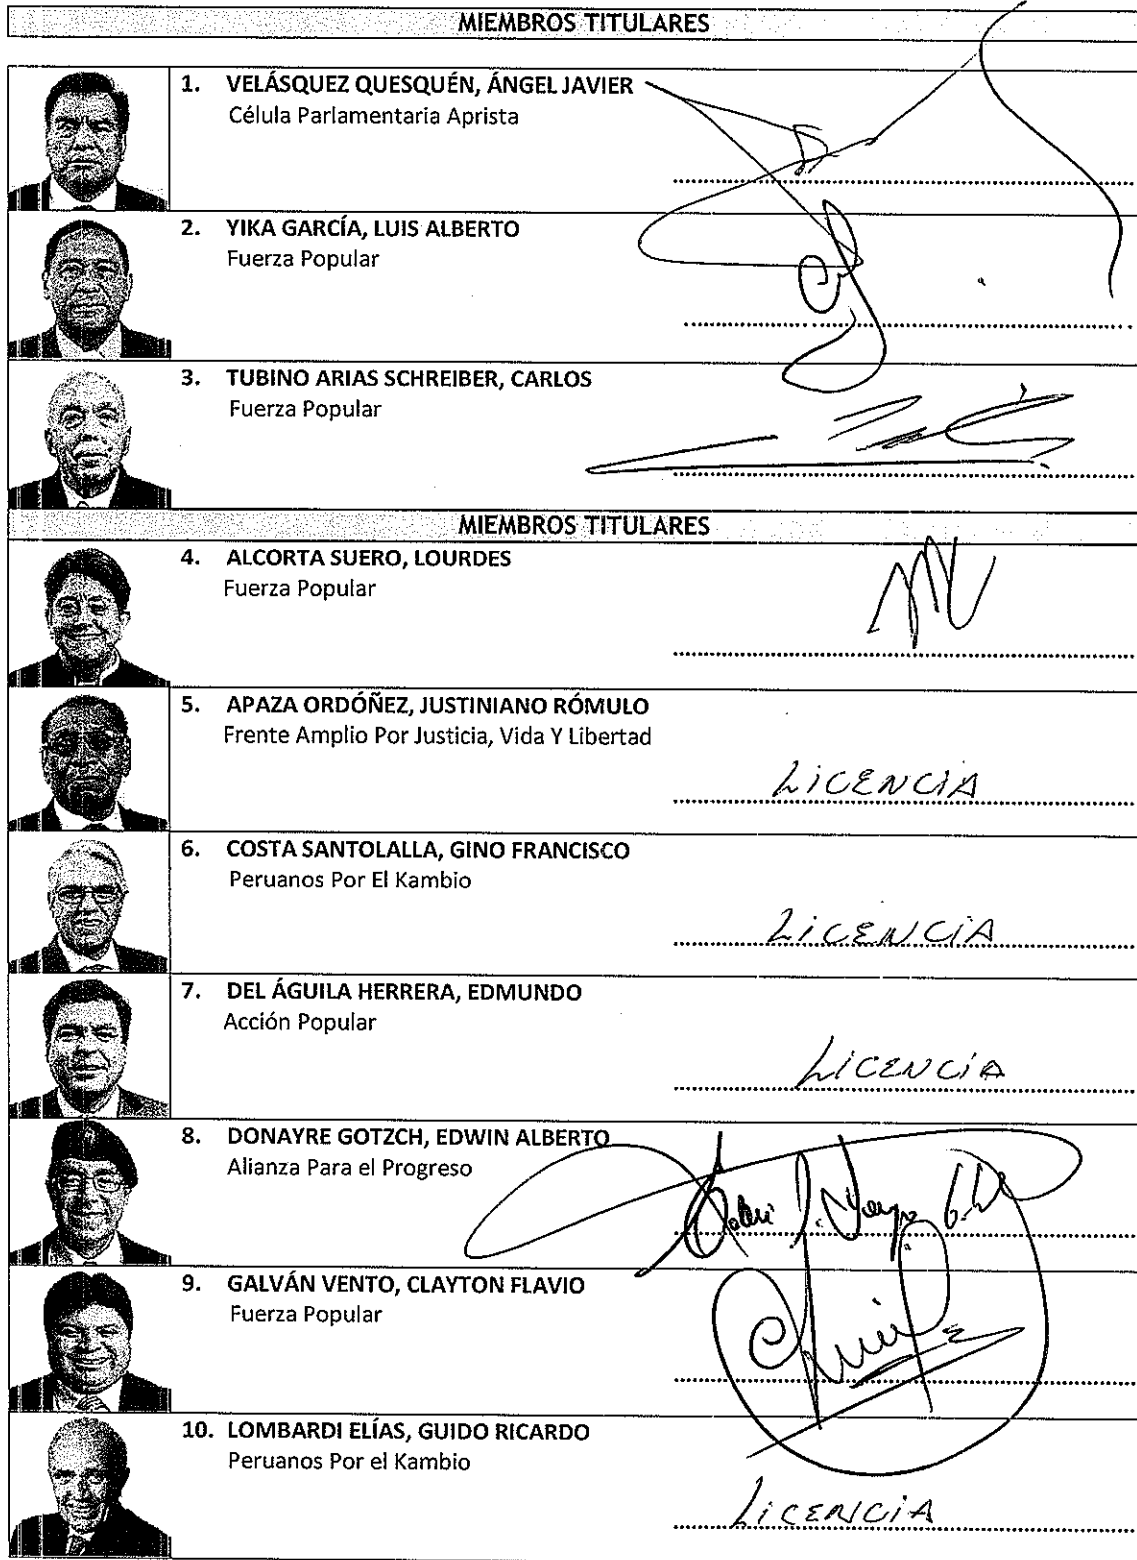 MIEMBROS TITULARES
1. VELÁSQUEZ QUESQUÉN, ÁNGEL JAVIER
Célula Parlamentaria Aprista
2. YIKA GARCÍA, LUIS ALBERTO
Fuerza Popular
3. TUBINO ARIAS SCHREIBER, CARLOS
Fuerza Popular
MIEMBROS TITULARES
4. ALCORTA SUERO, LOURDES
Fuerza Popular
5. APAZA ORDÓÑEZ, JUSTINIANO RÓMULO
Frente Amplio Por Justicia, Vida Y Libertad
LiCENCiA
6. COSTA SANTOLALLA, GINO FRANCISCO
Peruanos Por El Kambio
LiCENCiA
7. DEL ÁGUILA HERRERA, EDMUNDO
Acción Popular
LiCENCiA
8. DONAYRE GOTZCH, EDWIN ALBERTO
Alianza Para el Progreso
9. GALVÁN VENTO, CLAYTON FLAVIO
Fuerza Popular
10. LOMBARDI ELÍAS, GUIDO RICARDO
Peruanos Por el Kambio
LiCENCiA